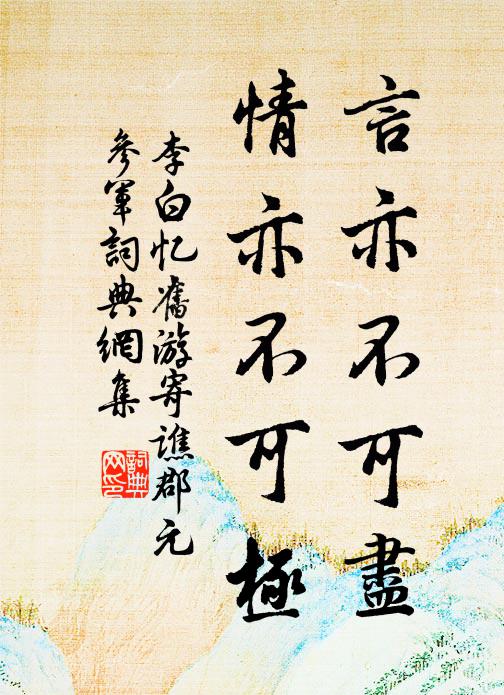 言亦不可盡
情亦不可極
李白忆舊游寄譙郡元
參軍詞典網集
詞典
网印